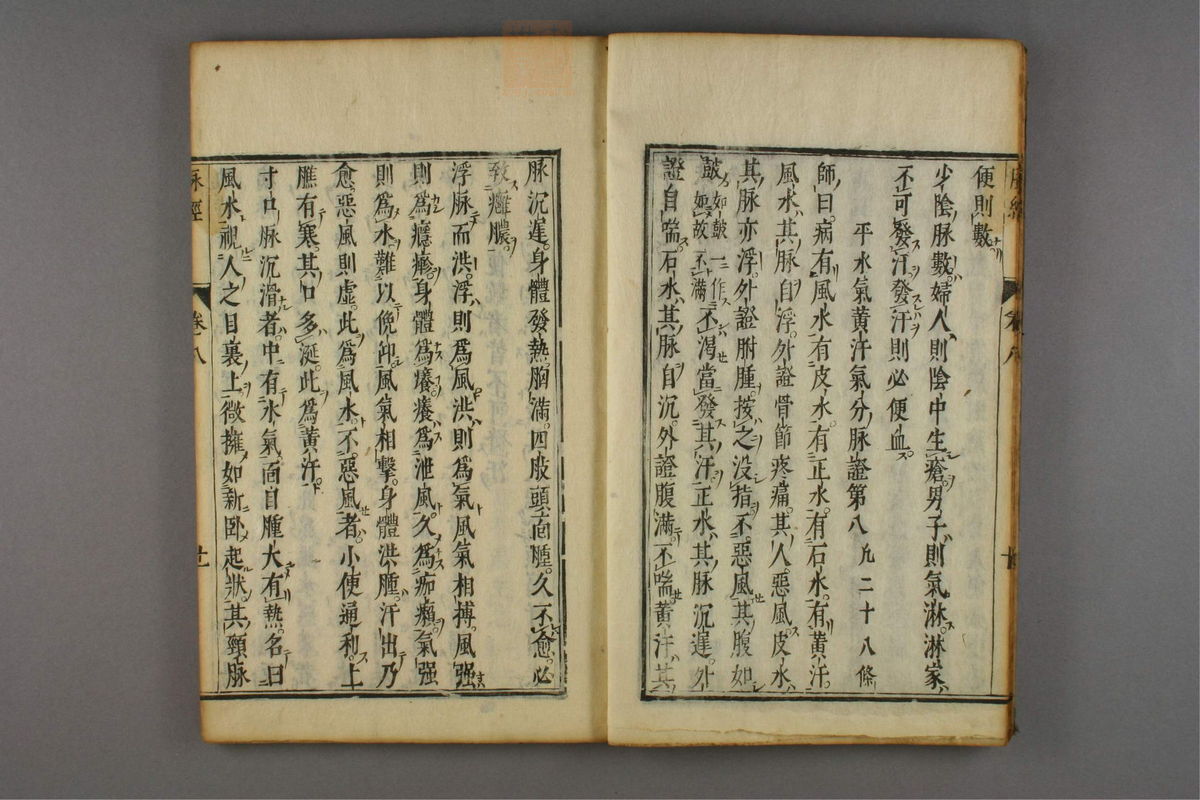 便則數
少陰脉數婦人則陰中生瘡男子則氣淋淋家
不可發汗發汗則必便血
平水氣黃汗氣分脉證第八凡二十八條
師曰病有風水有皮水有正水有石水有黃汗
風水其脉自浮外證骨節疼痛其人惡風皮水
其脉亦浮外證胕腫按之没指不惡風其腹如
鼓如鼓一作如故不滿不渴當發其汗正水其脉沉遲外
證自喘石水其脉自沉外證腹滿不喘黃汗其
脉沉遲身體發熱胸滿四肢頭面腫久不愈必
致癰膿
浮脉而洪浮則爲風洪則爲氣風氣相搏風强
則爲癮𤺋身體爲癢癢爲泄風久爲痂癩氣强
則爲水難以俛仰風氣相擊身體洪腫汗出乃
愈惡風則虛此爲風水不惡風者小便通利上
膲有寒其口多涎此爲黃汗
寸口脉沉滑者中有水氣面目腫大有熱名曰
風水視人之目裏上微擁如新卧起狀其頸脉
脉經
卷八
廿一